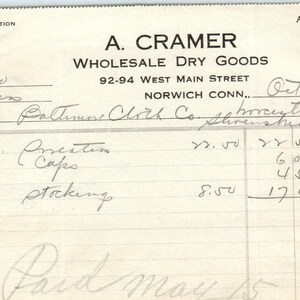 TION
A. CRAMER
WHOLESALE DRY GOODS
92-94 WEST MAIN STREET
NORWICH CONN., Oct
Baltimore Cloth Co.
Sweaters 22.50 22 5
Caps 6 0
4 5
Stockings 8.50 17 0
Paid May 15